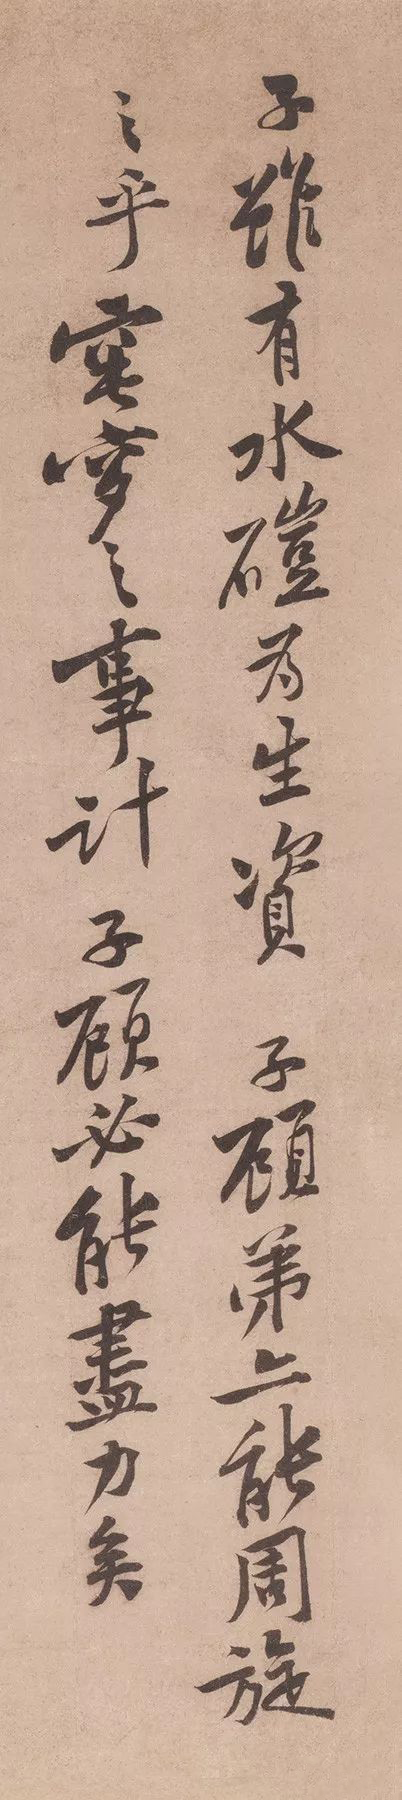 子雖有水磑為生資 子頎弟亦能周旋
之乎窀穸之事計 子頎必能盡力矣